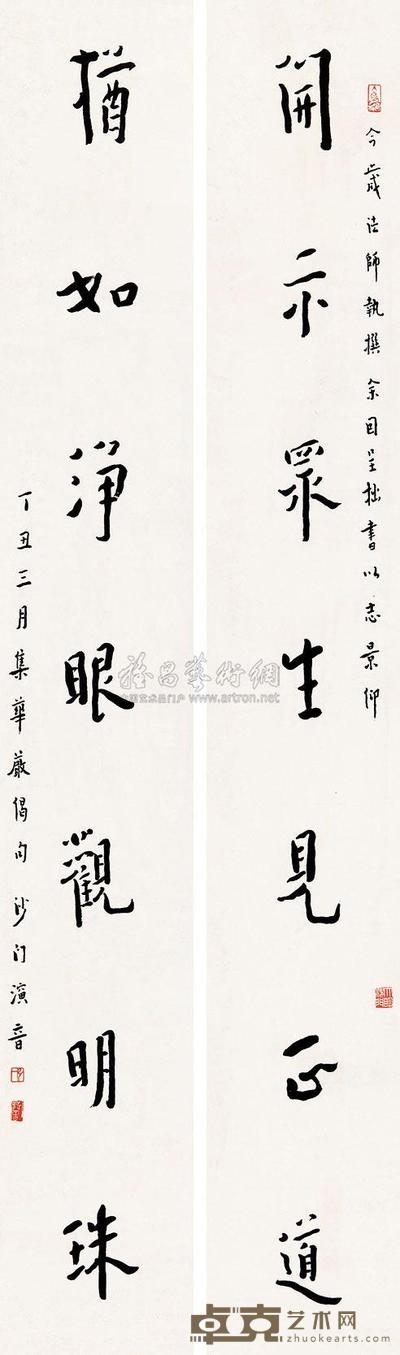 今歲法師執撰余因呈拙書以志景仰
開示眾生見正道
猶如淨眼觀明珠
丁丑三月集華嚴偈句沙门演音
雅昌藝術網
中国艺术品门户 www.artron.net
卓克艺术网
zhuokearts.com